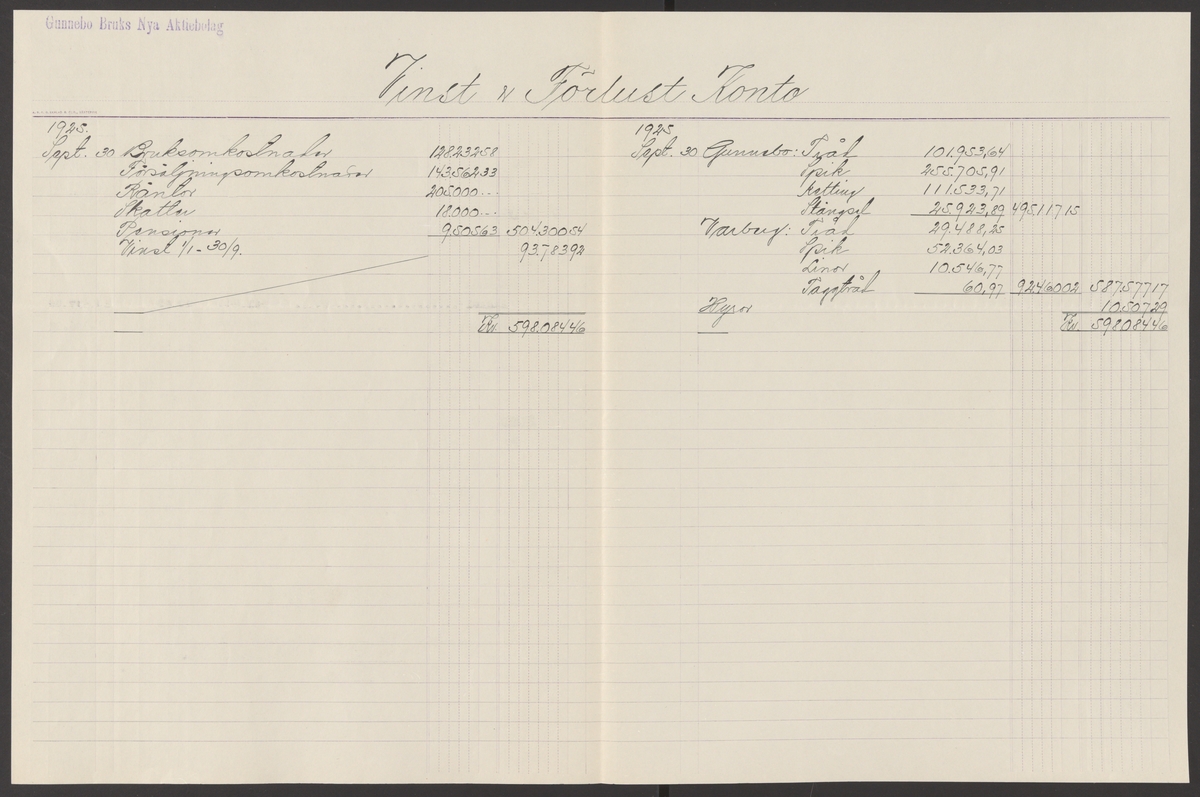 Gunnebo Bruks Nya Aktiebolag
Vinst & Förlust Konto
1925.
Sept. 30 Bruksomkostnader 128.232 58
Försäljningsomkostnader 143.562 33
Räntor 205.000 --
Skatter 18.000 --
Pensioner 9.505 63 504.300 54
Vinst 1/1 - 30/9. 93.783 92
Kr. 598.084 46
1925
Sept. 30 Gunnebo: Tråd 101.953,64
Spik 255.705,91
Kätting 111.533,71
Stängsel 25.923,89 495.117 15
Varberg: Tråd 29.488,25
Spik 52.364,03
Linor 10.546,77
Taggtråd 60,97 92.460 02 587.577 17
Hyror 10.507 29
Kr. 598.084 46